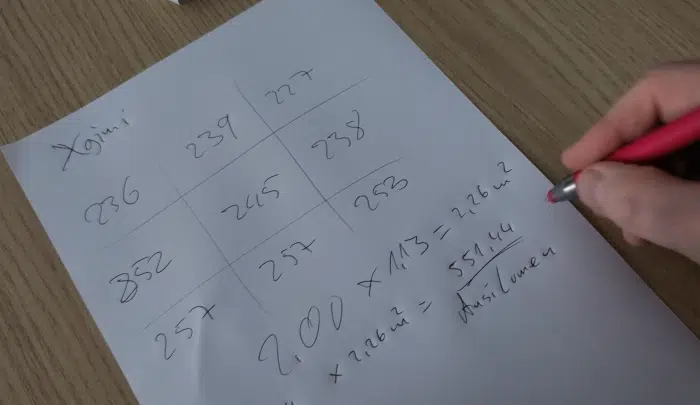 Xgimi
236 239 227
852 245 238
257 257 253
2,00 × 1,13 = 2,26 m²
× 2,26 m² = 551,44
AnsiLumen